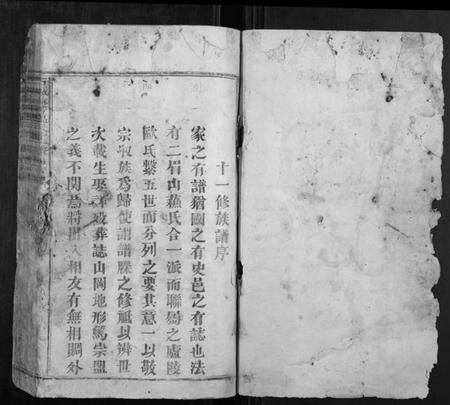 十一修族譜序
家之有譜猶國之有史邑之有誌也法
有二眉山蘇氏合一派而聯屬之廬陵
歐氏繫五世而分列之要其意一以敬
宗收族為歸使謂譜牒之修祗以辨世
次載生娶卒葬誌山岡地形篤崇盟
之義不關為將相友有無相賙外